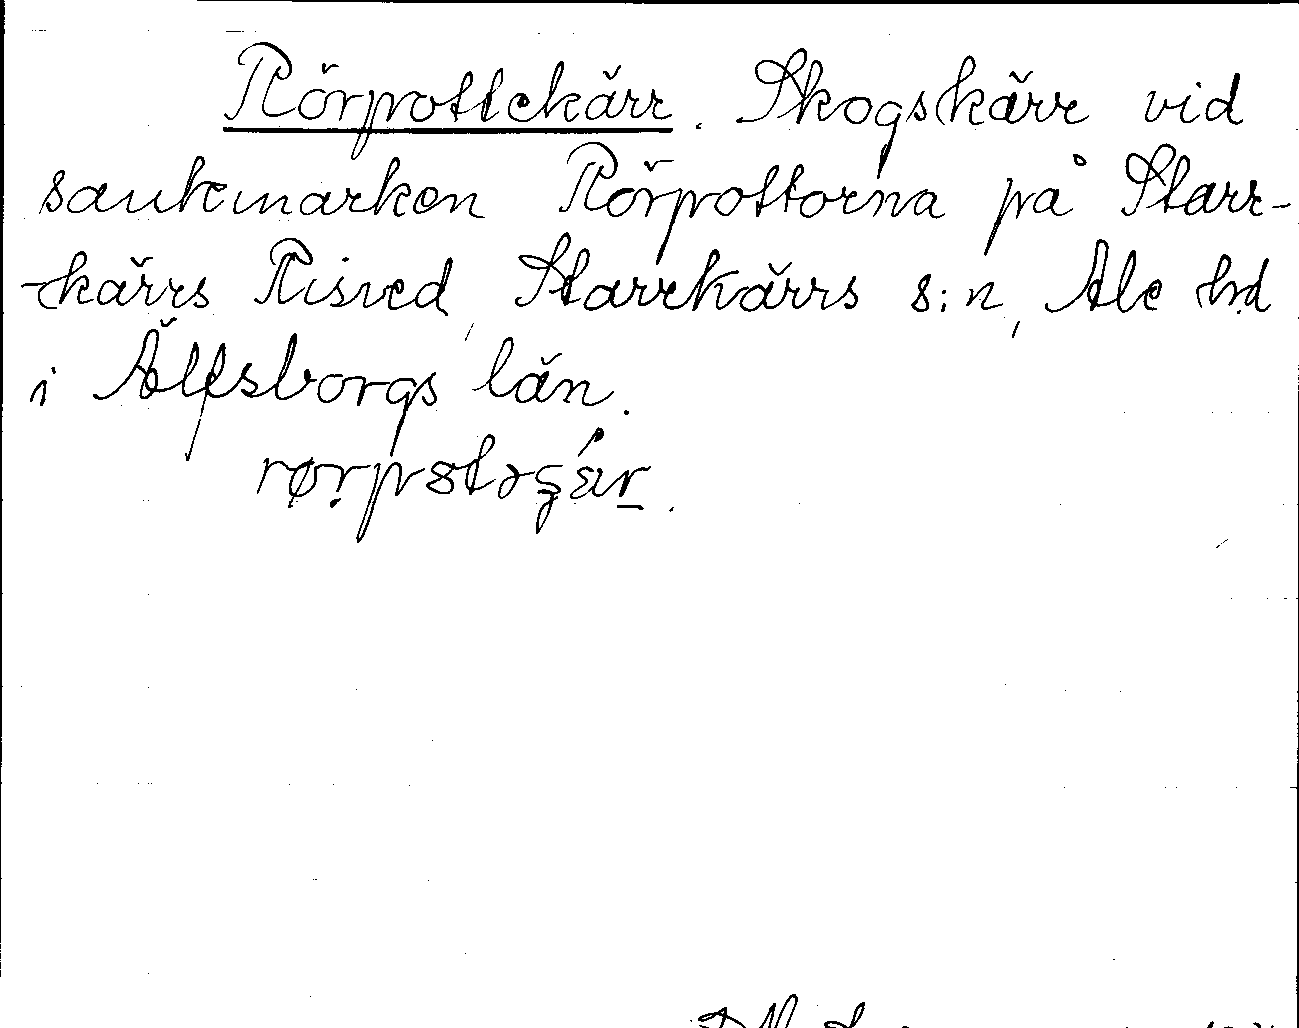 Rörpottekärr. Skogskärr vid
sankmarken Rörpottorna på Starr-
kärrs Risved, Starrkärrs s:n, Ale hd
i Älfsborgs län.